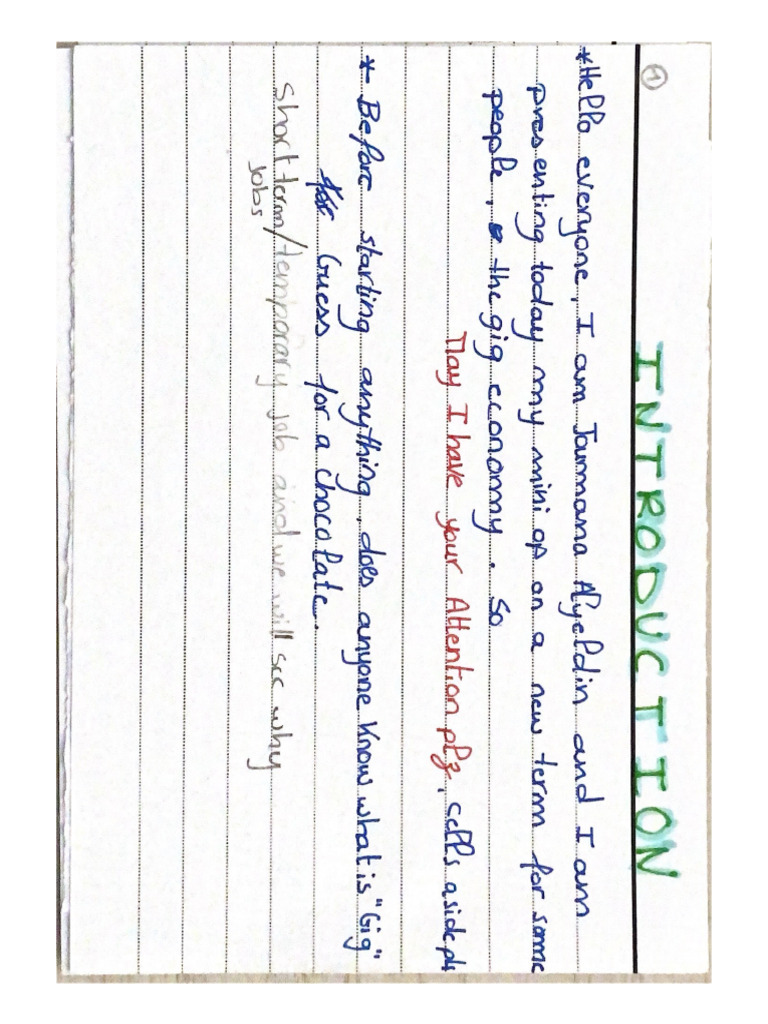 1
INTRODUCTION
*Hello everyone, I am Jaumana Alyeldin and I am
presenting today my mini op on a new term for some
people, the gig economy. So
May I have your Attention plz, cells aside pls
* Before starting anything, does anyone Know what is "Gig"
for Guess for a chocolate.
Short term/temporary job and we will see why
jobs